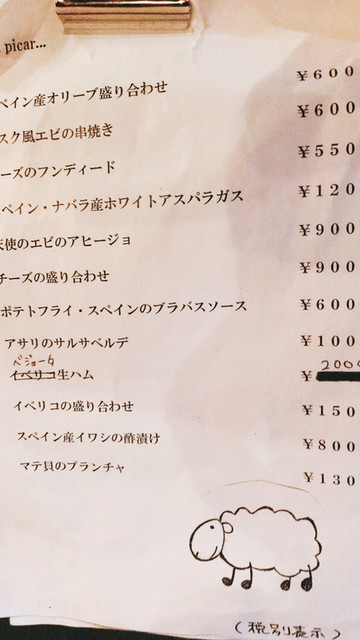 picar...
ペイン産オリーブ盛り合わせ ￥６００
スク風エビの串焼き ￥６００
ーズのフンディード ￥５５０
ペイン・ナバラ産ホワイトアスパラガス ￥１２０
天使のエビのアヒージョ ￥９００
チーズの盛り合わせ ￥９００
ポテトフライ・スペインのブラバスソース ￥６００
アサリのサルサベルデ ￥１００
ベジョータ
イベリコ生ハム ￥ 2000
イベリコの盛り合わせ ￥１５０
スペイン産イワシの酢漬け ￥８００
マテ貝のプランチャ ￥１３０
(税別表示)